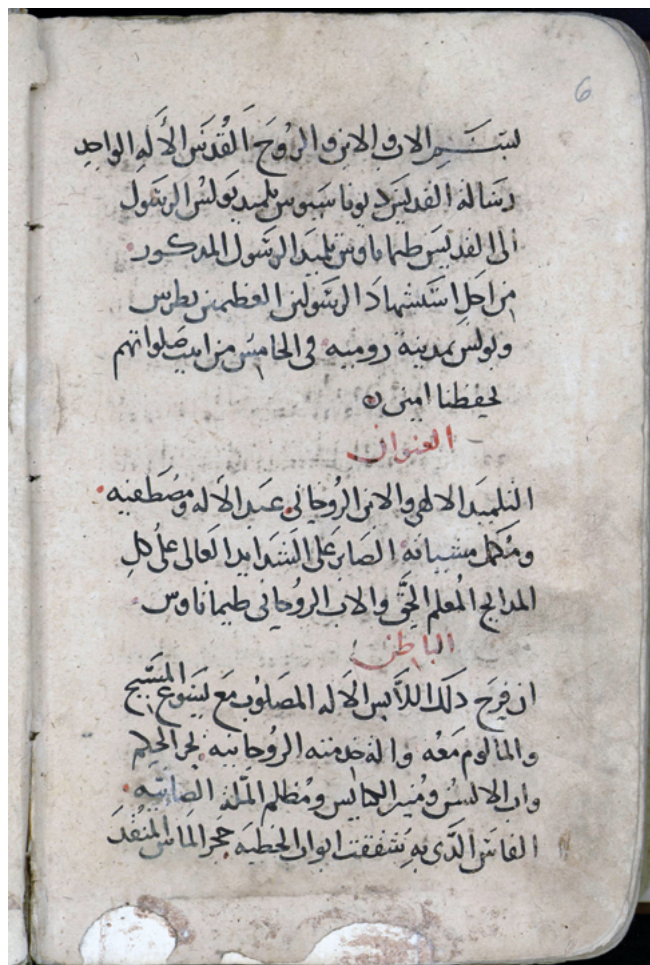 6
بسم الاب والابن والروح القدس الاله الواحد
رساله القديس ديوناسيوس تلميد بولس الرسول
الى القديس طيماتاوس تلميد الرسول المدكور
من اجل استشهاد الرسولين العظيمين بطرس
وبولس بمدينة روميه في الخامس من ابيب صلواتهم
تحفظنا امين
العنوان
التلميد الالاهي والابن الروحاني عبد الاله ومصطفيه
ومكمل مشياته الصابر على الشدايد العالي على كل
المدايح المعلم الحق والاب الروحاني طيماتاوس
الباطن
ان فرح دلك اللابس الاله المصلوب مع يسوع المسيح
والمالوم معه واله خدمته الروحانيه بحر الحكم
واب الالسن ومنير الكنايس ومظلم المله الصابيه
الفاس الدي به شققت ابواب الخطيه حجر الماس المنقد